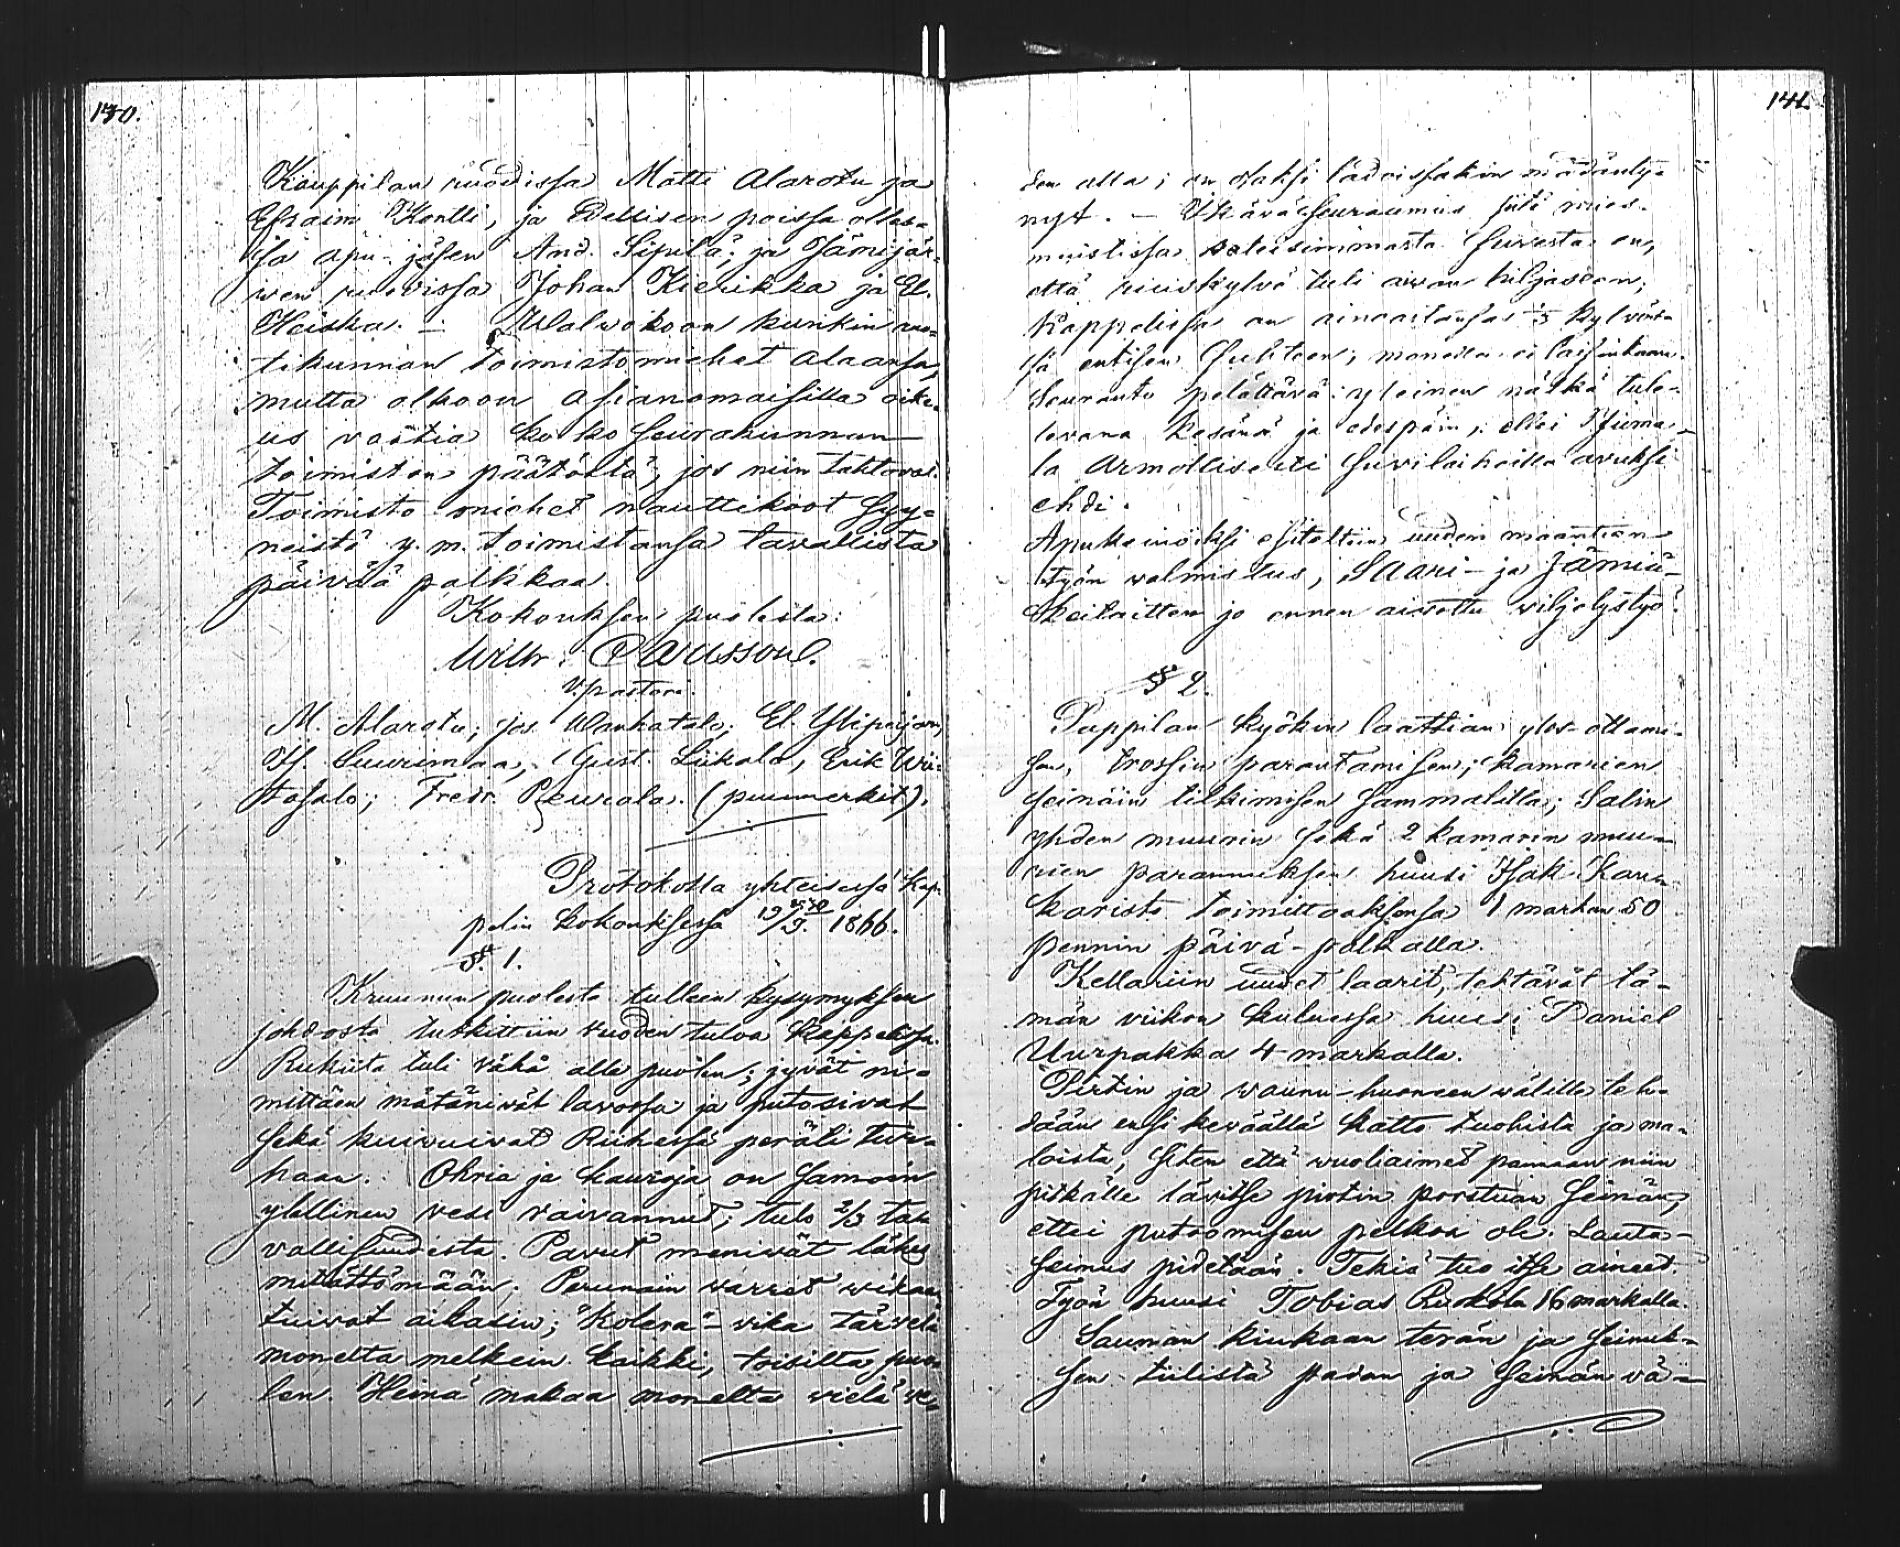 140.
Kauppilan ruodissa Matti Alarotu ja
Efraim Kontti, ja Edellisen poissa olles-
sa apu-jäsen And. Sipilä; ja Jämijär-
wen ruodissa Johan Kierikka ja El.
Heiska. — Walwokoon kunkin ruo-
tikunnan toimistomiehet alaansa,
mutta olkoon asianomaisilla oike-
us vaatia koko seurakunnan
toimiston päätöstä, jos niin tahtovat.
Toimisto miehet nauttikoot Syy-
neistä y. m. toimistansa tavallista
päivää palkkaa.
Kokouksen puolesta:
Wilh. Carlsson.
v. pastori.
M. Alarotu; Jos. Wanhatalo; El. Ylipäijän,
H. Suurimaa, Gust. Liikala, Erik Uu-
sitalo; Fredr. Peurala. (puumerkit).
Protokolla yhteisessä Kap-
pelin kokouksessa 19/3. 1866.
§. 1.
Kruunun puolesta tulleen kysymyksen
johdosta tutkittiin vuoden tuloa Kappelissa.
Rukiita tuli vähä alle puolen; jyvät ni-
mittäen mätänivät lavossa ja putosivat
sekä kuivuivat Riihessä peräti tur-
haan. Ohria ja kauroja on samoin
ylöllinen vesi raivannut; tulo 2/3 ta-
vallisuudesta. Pavut menivät lähes
mitättömään. Perunain varret wikaan-
tuivat aikasin; "kolera"-vika tärveli
monelta melkein kaikki, toisilta puo-
len. Heinä makaa monelta vielä ve-
141
den alla; on osaksi ladoissakin mädänty-
nyt. — Ikävä seuraamus tätä mies-
muistissa sateisimmasta suvesta on,
että ruiskylvö tuli aivan hiljaseen;
Kappelissa on ainoastansa 1/3 kylvöstä
entisen suhteen; monella ei laisinkaan.
Seuranto pelättävä: yleinen nälkä tule-
levana kesänä ja edespäin, ellei Juma-
la Armollisesti suvilaihoilla avuksi
ehdi.
Apukeinoiksi esiteltiin uuden maantien
työn valmistus, Saari- ja Jämiä-
keitaitten jo ennen aivottu viljelystyö.
§ 2.
Pappilan kyökin laattian ylös-ottami-
sen, trossin parantamisen; kamarien
seinäin tilkimisen sammalilla; Salin
yhden muurin sekä 2 kamarin muu-
rien parannuksen huusi Isak Kan-
karisto toimittaaksensa 1 markan 50
pennin päivä-palkalla.
Kellariin uudet laarit, tehtävät tä-
män viikon kuluessa huusi Daniel
Uurpakka 4 markalla.
Pirtin ja waunu-huoneen wälille teh-
dään ensi keväällä katto tuohista ja ma-
loista, siten että vuoliaimet pannaan niin
pitkälle lävitse pirtin porstuan seinän,
ettei putoomisen pelkoa ole. Lauta-
seinus pidetään. Tekiä tuo itse aineet.
Työn huusi Tobias Ruokola 16 markalla.
Saunan kiukaan terän ja seinuk-
sen tiilistä padan ja seinän vä-